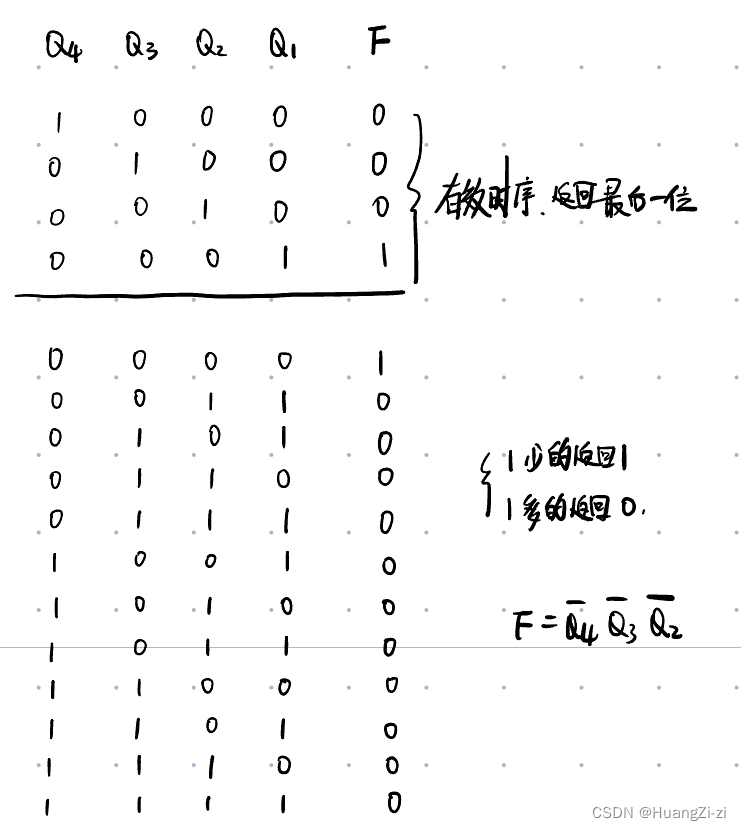 Q₄ Q₃ Q₂ Q₁ F
1 0 0 0 0
0 1 0 0 0
0 0 1 0 0
0 0 0 1 1
有效时序、返回最后一位
0 0 0 0 1
0 0 1 1 0
0 1 0 1 0
0 1 1 0 0
0 1 1 1 0
1 0 0 1 0
1 0 1 0 0
1 0 1 1 0
1 1 0 0 0
1 1 0 1 0
1 1 1 0 0
1 1 1 1 0
1少的返回1
1多的返回0.
F = Q̅₄ Q̅₃ Q̅₂
CSDN @HuangZi-zi